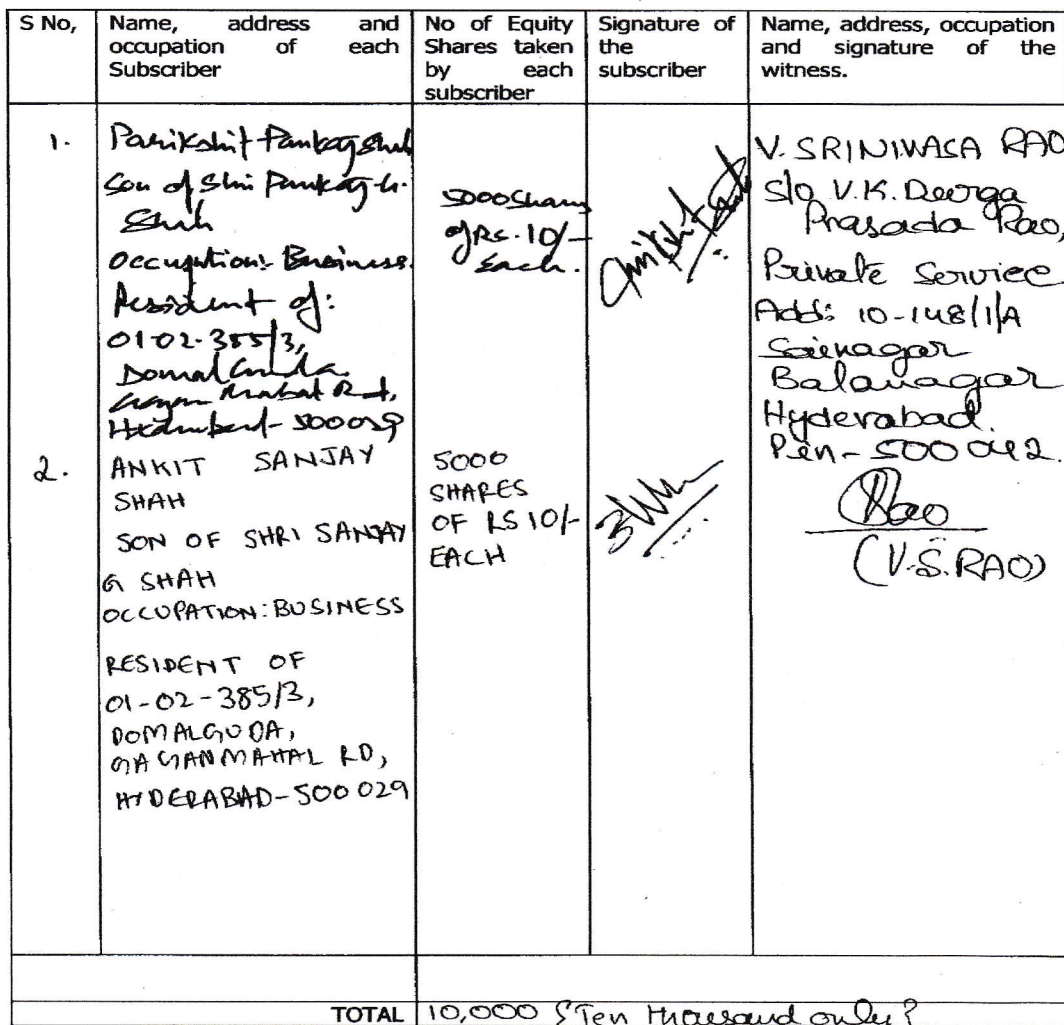 S No,
Name, address and
occupation of each
Subscriber
No of Equity
Shares taken
by each
subscriber
Signature of
the
subscriber
Name, address, occupation
and signature of the
witness.
1.
Parikshit Pankaj Shah
Son of Shri Pankaj G.
Shah
Occupation: Business.
Resident of:
01-02-385/3,
Domalguda
Gagan Mahal Rd,
Hyderabad-500029
5000 Shares
of Rs. 10/-
Each.
V. SRINIVASA RAO
S/o V.K. Deerga
Prasada Rao,
Private Service
Add: 10-148/1/A
Sainagar
Balanagar
Hyderabad.
Pin-500042.
Rao
(V.S.RAO)
2.
ANKIT SANJAY
SHAH
SON OF SHRI SANJAY
G SHAH
OCCUPATION: BUSINESS
RESIDENT OF
01-02-385/3,
DOMALGUDA,
GAGANMAHAL RD,
HYDERABAD-500029
5000
SHARES
OF RS 10/-
EACH
TOTAL
10,000 {Ten thousand only}